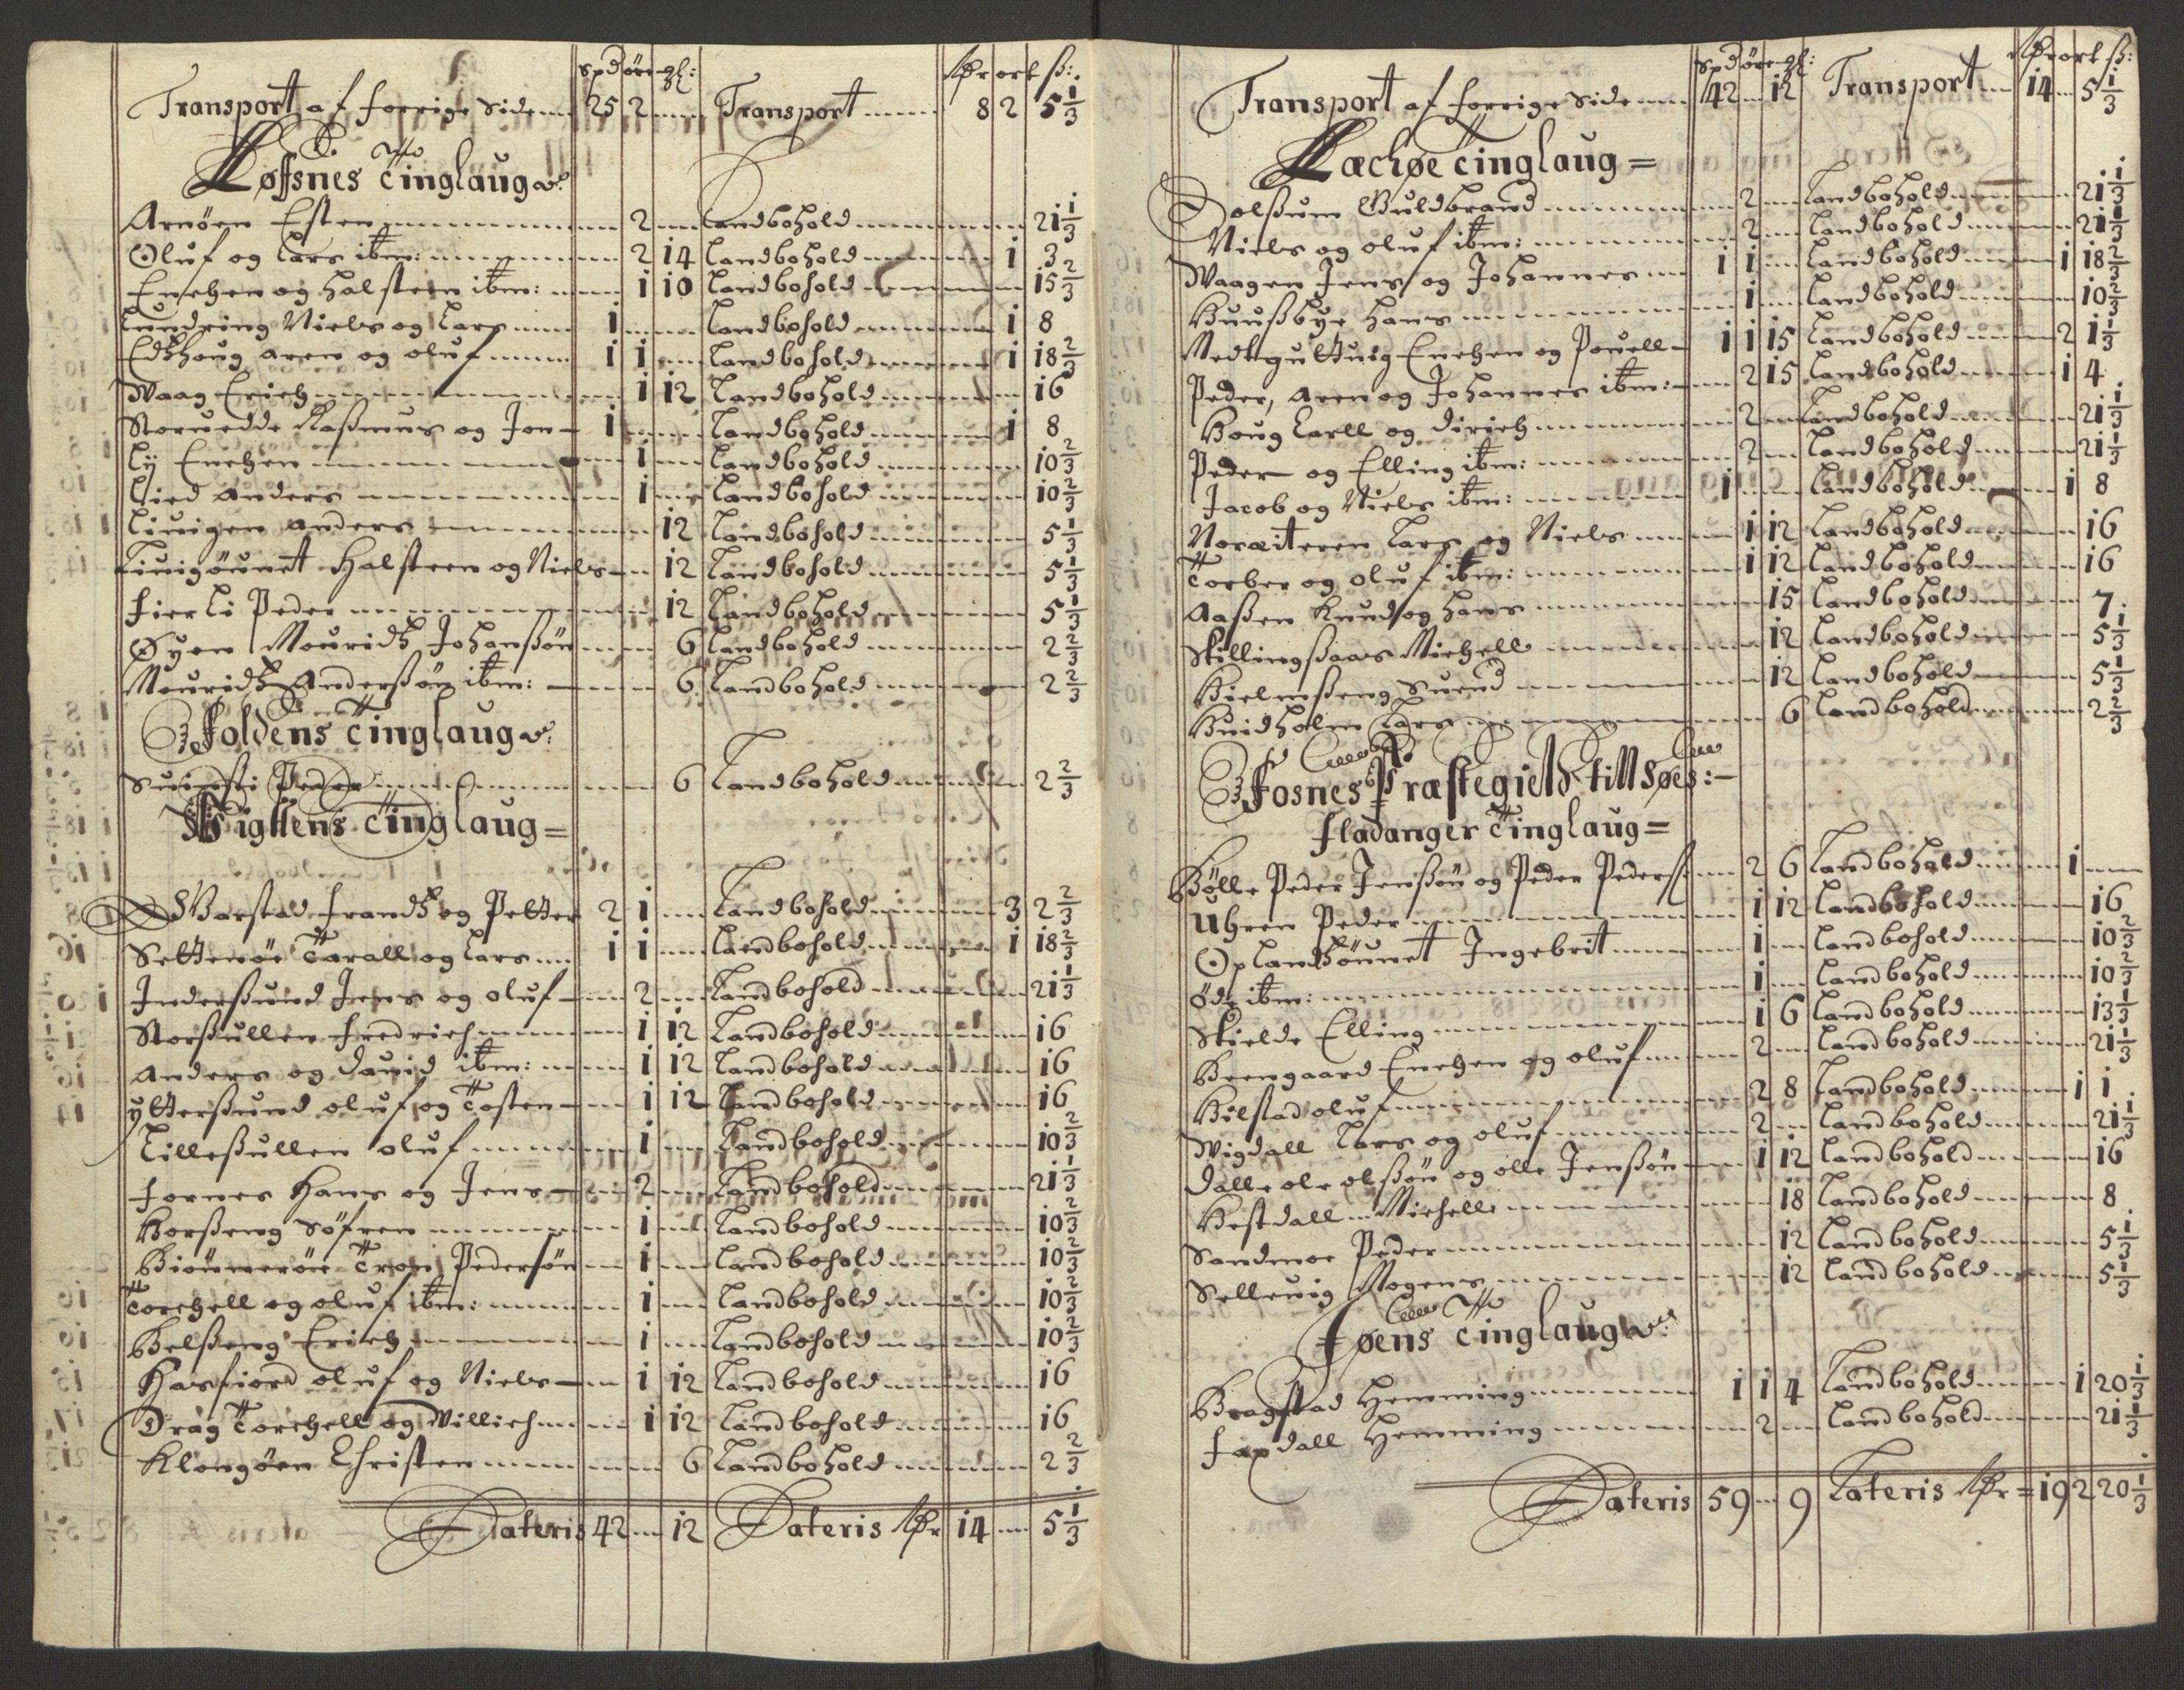 Spd øre gl: Rdr ort ß:
Transport af forrige Side 25 2 Transport 8 2 5 1/3
Løffsnes Tinglaug
Arnøen Esten 2 Landbohold 21 1/3
Oluf og Lars ibm: 2 14 Landbohold 1 3
Enchen og Halsteen ibm: 1 10 Landbohold 15 2/3
Lundring Niels og Lars 1 Landbohold 1 8
Edshoug Aren og Oluf 1 1 Landbohold 1 18 2/3
Waag Erich 1 12 Landbohold 16
Storuedde Raßmus og Jon 1 Landbohold 1 8
Lÿ Enchen 1 Landbohold 10 2/3
Lied Anders 1 Landbohold 10 2/3
Liuigen Anders 12 Landbohold 5 1/3
Liuigøunet Halsteen og Niels 12 Landbohold 5 1/3
Fier Li Peder 12 Landbohold 5 1/3
Øyen Mouridtz Johanßøn 6 Landbohold 2 2/3
Mouridtz Anderßøn ibm: 6 Landbohold 2 2/3
Foldens Tinglaug
Peder 6 Landbohold 2 2/3
Wigttens Tinglaug =
Warstad Frandtz og Petter 2 1 Landbohold 3 2 2/3
Settenøe Tarall og Lars 1 1 Landbohold 1 18 2/3
Inderßund Jens og Oluf 2 Landbohold 21 1/3
Storßullen Fredrich 1 12 Landbohold 16
Anders og Dauid ibm: 1 12 Landbohold 16
ytterßund Oluf og Tosten 1 12 Landbohold 16
Lilleßullen Oluf 1 Landbohold 10 2/3
Fornes Hans og Jens 2 Landbohold 21 1/3
Horßeng Söfren 1 Landbohold 10 2/3
Biönnerøe Tron Pedersøn 1 Landbohold 10 2/3
Torchell og Oluf ibm: 1 Landbohold 10 2/3
Helßeng Erich 1 Landbohold 10 2/3
Hasfiord Oluf og Niels 1 12 Landbohold 16
Drag Torchell og Willich 1 12 Landbohold 16
Klongøen Christen 6 Landbohold 2 2/3
Lateris 42 12 Lateris Rdr 14 5 1/3
Spd øre gl: Rdr ort ß:
Transport af forrige Side 42 12 Transport 14 5 1/3
Lechøe Tinglaug =
Solßum Guldbrand 2 Landbohold 21 1/3
Niels og Oluf ibm: 2 Landbohold 21 1/3
Waagen Jens og Johannes 1 1 Landbohold 1 18 2/3
Huußbye Hans 1 Landbohold 10 2/3
Medtgulttuig Enchen og Pouell 1 1 15 Landbohold 2 1 1/3
Peder, Aren og Johannes ibm: 2 15 Landbohold 1 4
Houg Carll og Dirich 2 Landbohold 21 1/3
Peder og Elling ibm: 2 Landbohold 21 1/3
Jacob og Niels ibm: 1 Landbohold 1 8
Noraiteren Lars og Niels 1 12 Landbohold 16
Torber og Oluf ibm: 1 12 Landbohold 16
Aaßen Knud og Hans 15 Landbohold 7
Skillingßaas Michell 12 Landbohold 5 1/3
Hielmßeng Suend 12 Landbohold 5 1/3
Huidholm Lars 6 Landbohold 2 2/3
Fosnes Præstegield till Søes:
Fladanger Tinglaug =
Bölle Peder Jenßøn og Peder Pederß: 2 6 Landbohold 1
Uhren Peder 1 12 Landbohold 16
Oplandßöunet Ingebrit 1 Landbohold 10 2/3
Öde ibm: 1 Landbohold 10 2/3
Skielde Elling 1 6 Landbohold 13 1/3
Breengaard Enchen og Oluf 2 Landbohold 21 1/3
Hilstad Oluf 2 8 Landbohold 1 1
Wigdall Lars og Oluf 2 Landbohold 21 1/3
Dalle Ole Olßøn og Olle Jenßøn 1 12 Landbohold 16
Hestdall Michelle 18 Landbohold 8
Sandmoe Peder 12 Landbohold 5 1/3
Selleuig Mogens 12 Landbohold 5 1/3
Jøens Tinglaug
Bragstad Hemming 1 1 4 Landbohold 1 20 1/3
Faxdall Hemming 2 Landbohold 21 1/3
Lateris 59 9 Lateris Rdr = 19 2 20 1/3